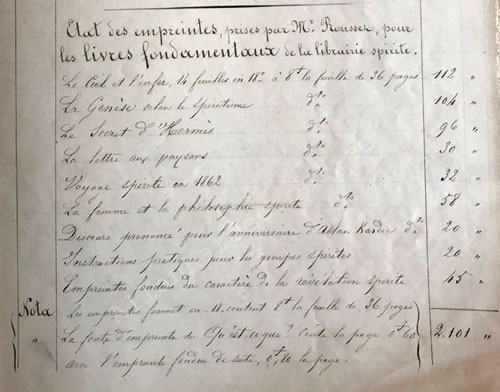 Etat des empreintes, prises par Mr. Roussel, pour
les livres fondamentaux de la librairie spirite.
Le Ciel et l'enfer, 14 feuilles en 18º à 8f la feuille de 36 pages 112 "
La Genèse selon le spiritisme dº 104 "
Le Secret d'Hermès dº 96 "
La lettre aux paysans dº 30 "
Voyage spirite en 1862 dº 32 "
La femme et la philosophie spirite dº 58 "
Discours prononcé pour l'anniversaire d'Allan Kardec dº 20 "
Instructions pratiques pour les groupes spirites 20 "
Empreintes fondues du caractère de la révélation spirite 45 "
Nota Les empreintes format en 18. coutent 8f la feuille de 36 pages
" La fonte d'empreinte du Qu'est-ce que? coûte la page 0f60 2.101 "
avec l'empreinte fondue de suite, 0f,80 la page.